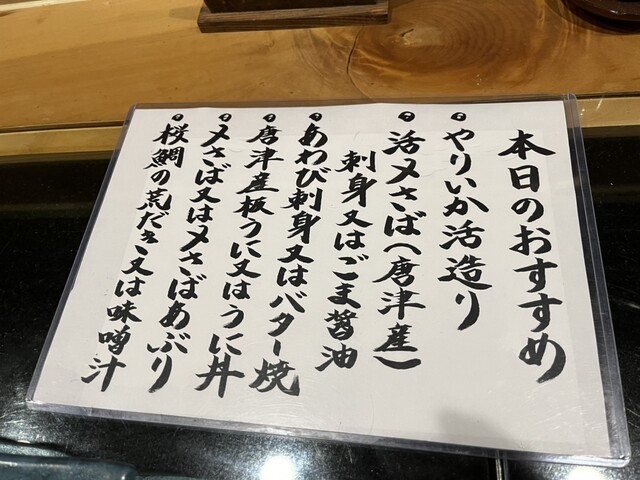 本日のおすすめ
・やりいか活造り
・活〆さば(唐津産)
刺身又はごま醤油
・あわび刺身又はバター焼
・唐津産板うに又はうに丼
・〆さば又は〆さばあぶり
・桜鯛の荒だき又は味噌汁